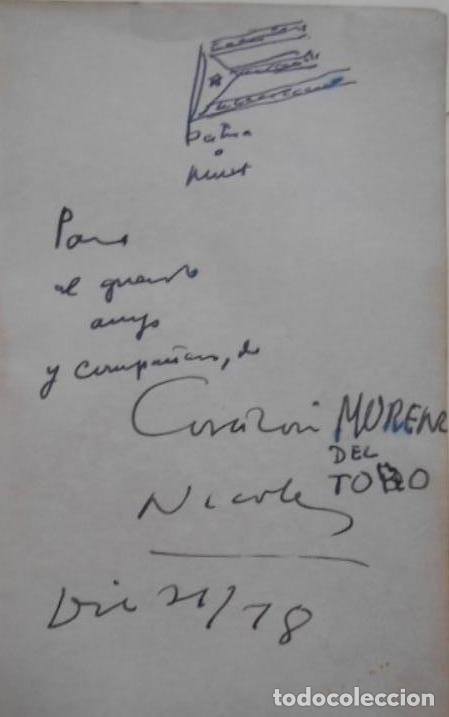 Patria
o
muert
Para
el querido
amigo
y compañero, de
Corazón MORENO
DEL
TORO
Nicolas
Dic 21/78
todocoleccion.net